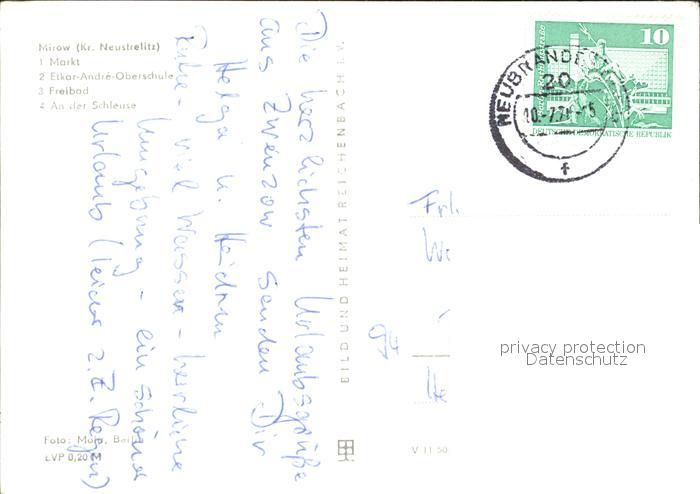 Mirow (Kr. Neustrelitz)
1 Markt
2 Etkar-André-Oberschule
3 Freibad
4 An der Schleuse
Die herzlichsten Urlaubsgrüße
aus Zwenzow senden Dir
Helga u.
Ruhe - viel Wasser - herrliche
Umgebung - ein schöner
Urlaub (leider z. Z. Regen)
Foto: Moja, Berlin
EVP 0,20 M
BILD UND HEIMAT REICHENBACH I. V.
V 11 50
10
DEUTSCHE DEMOKRATISCHE REPUBLIK
NEUBRANDE
20
f
Frl.
privacy protection
Datenschutz